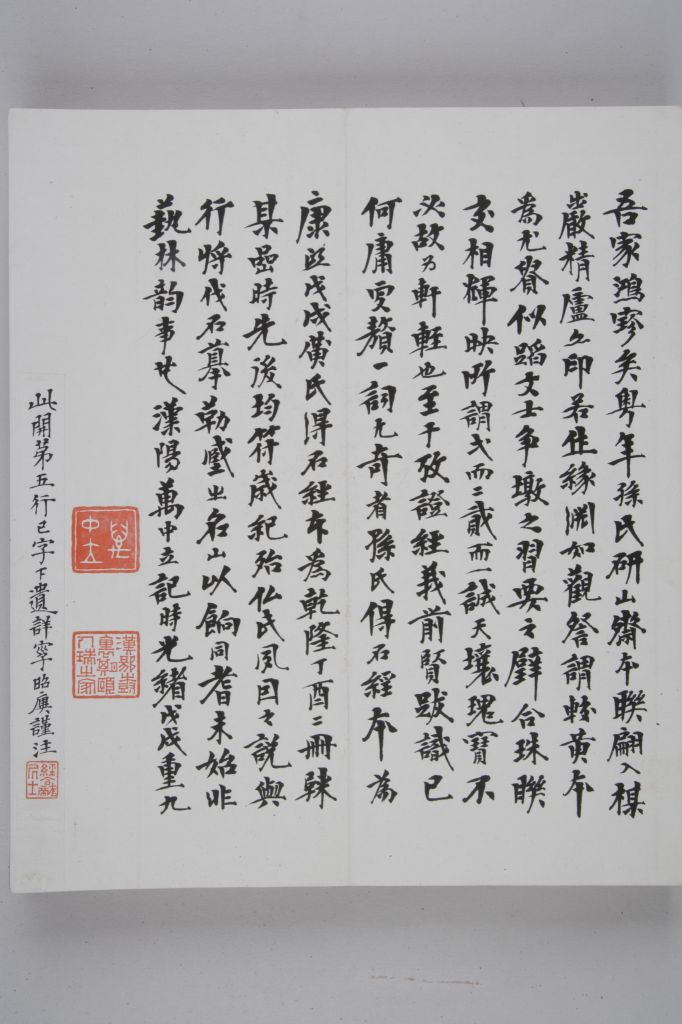 吾家鴻寶矣粵年孫氏研山齋本聯翩入棋
嚴精廬名印若隹緣淵如觀詧謂較黃本
為尤贊似蹈文士爭墩之習要之璧合珠聯
交相輝映所謂弌而二貳而一誠天壤瑰寶不
必故為軒輊也至于攷證經義前賢跋識已
何庸更贅一詞尤奇者孫氏得石經本為
康熙戊戌黃氏得石經本為乾隆丁酉二冊隸
某喦時先後均符歲紀殆仏氏夙因之說與
行將伐石摹勒藏㞢名山以餉同耆未始非
藝林韵事也漢陽萬中立記時光緒戊戌重九
萬中立
此開第五行已字下遺詳寧昭廣謹注